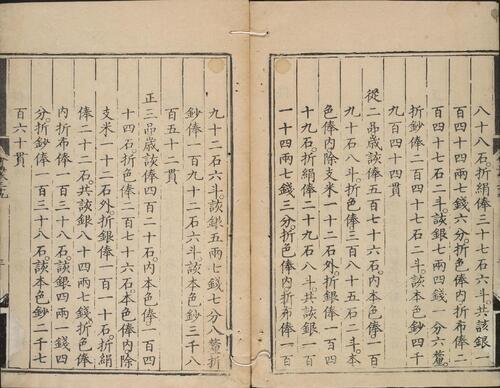 八十八石。折絹俸三十七石六斗。共該銀一
百四十四兩七錢六分。折色俸內折布俸二
百四十七石二斗。該銀七兩四錢一分六釐。
折鈔俸二百四十七石二斗。該本色鈔四千
九百四十四貫
從二品歲該俸五百七十六石。內本色俸一百
九十石八斗。折色俸三百八十五石二斗。本
色俸內除支米一十二石外。折銀俸一百四
十九石。折絹俸二十九石八斗。共該銀一百
一十四兩七錢三分。折色俸內。折布俸一百
九十二石六斗。該銀五兩七錢七分八釐。折
鈔俸一百九十二石六斗。該本色鈔三千八
百五十二貫
正三品歲該俸四百二十石。內本色俸一百四
十四石。折色俸二百七十六石。本色俸內除
支米一十二石外。折銀俸一百一十石。折絹
俸二十二石。共該銀八十四兩七錢。折色俸
內折布俸一百三十八石。該銀四兩一錢四
分。折鈔俸一百三十八石。該本色鈔二千七
百六十貫